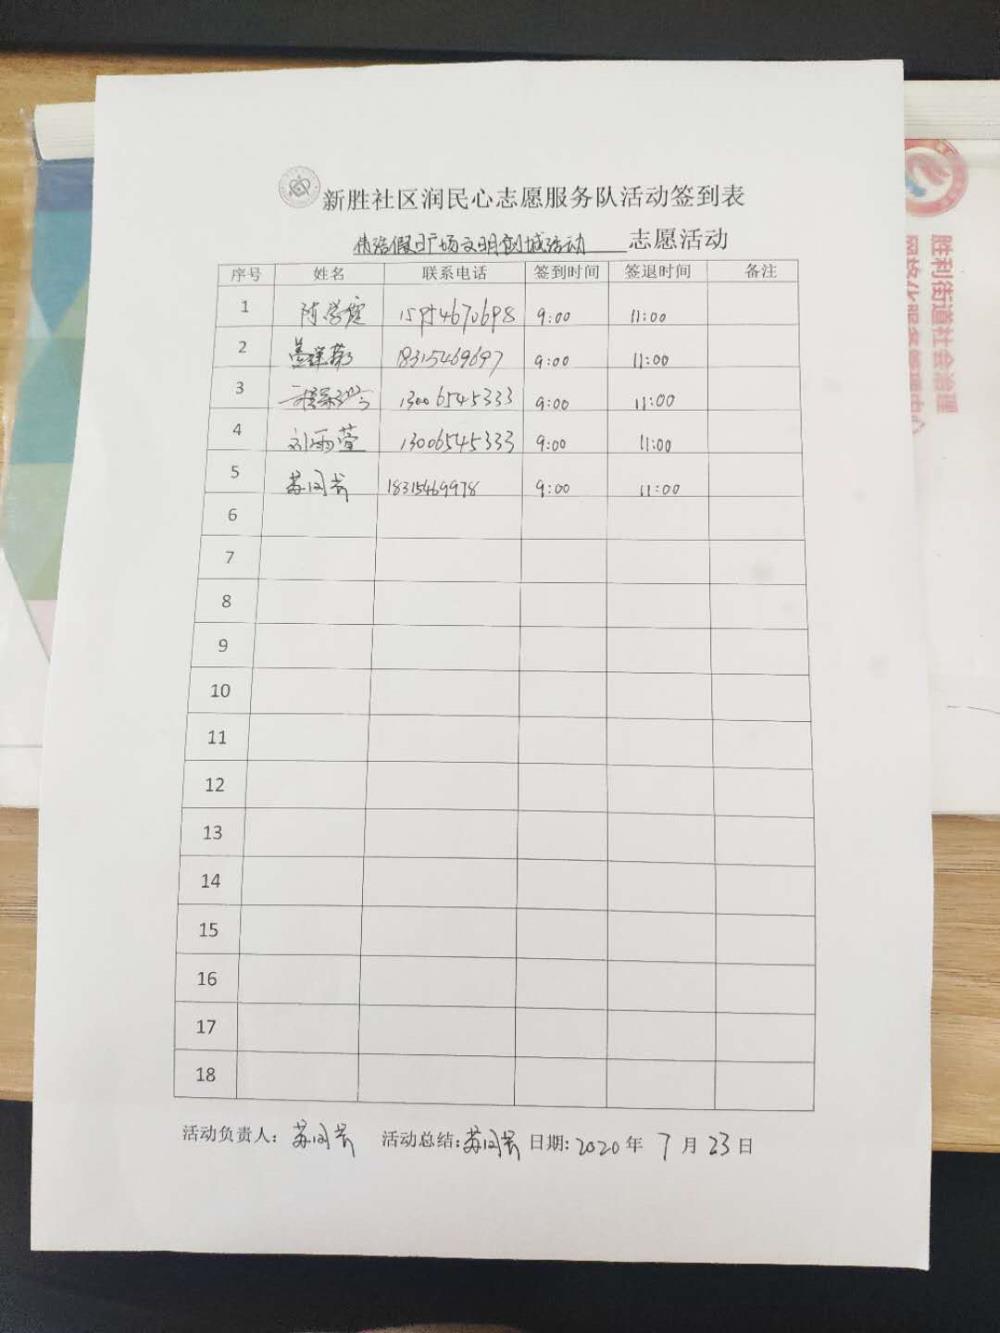 新胜社区润民心志愿服务队活动签到表
假日广场文明创城活动 志愿活动
序号 姓名 联系电话 签到时间 签退时间 备注
1 陈学 4670698 9:00 11:00
2 18315469697 9:00 11:00
3 13006545333 9:00 11:00
4 刘雨萱 13006545333 9:00 11:00
5 苏 18315469978 9:00 11:00
6
7
8
9
10
11
12
13
14
15
16
17
18
活动负责人: 苏 活动总结: 苏 日期: 2020 年 7 月 23 日
胜利街道社会治理